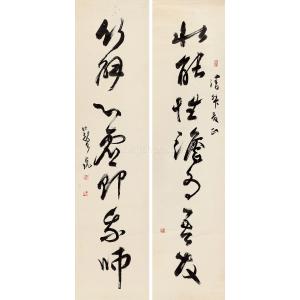 水能性澹為吾友
竹解心虛即我師